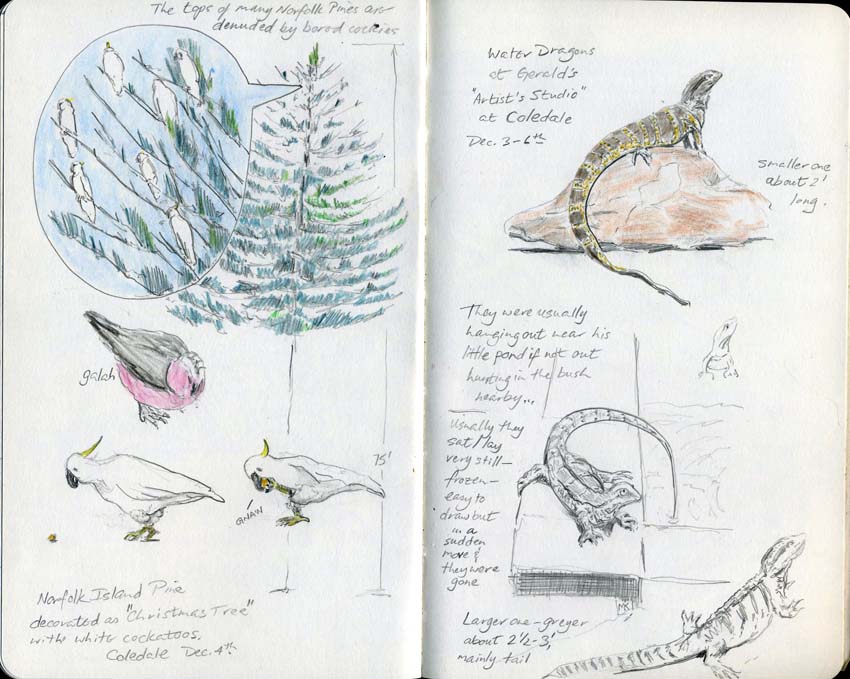 The tops of many Norfolk Pines are
denuded by bored cockies
galah
GNAW
75'
Norfolk Island Pine
decorated as "Christmas Tree"
with white cockatoos.
Coledale Dec. 4th
Water Dragons
at Gerald's
"Artist's Studio"
at Coledale
Dec. 3-6th
smaller one
about 2'
long.
They were usually
hanging out near his
little pond if not out
hunting in the bush
nearby...
Usually they
sat very
very still -
frozen -
easy to
draw but
in a
sudden
move &
they were
gone
MK
Larger one - greyer
about 2 1/2 - 3',
mainly tail